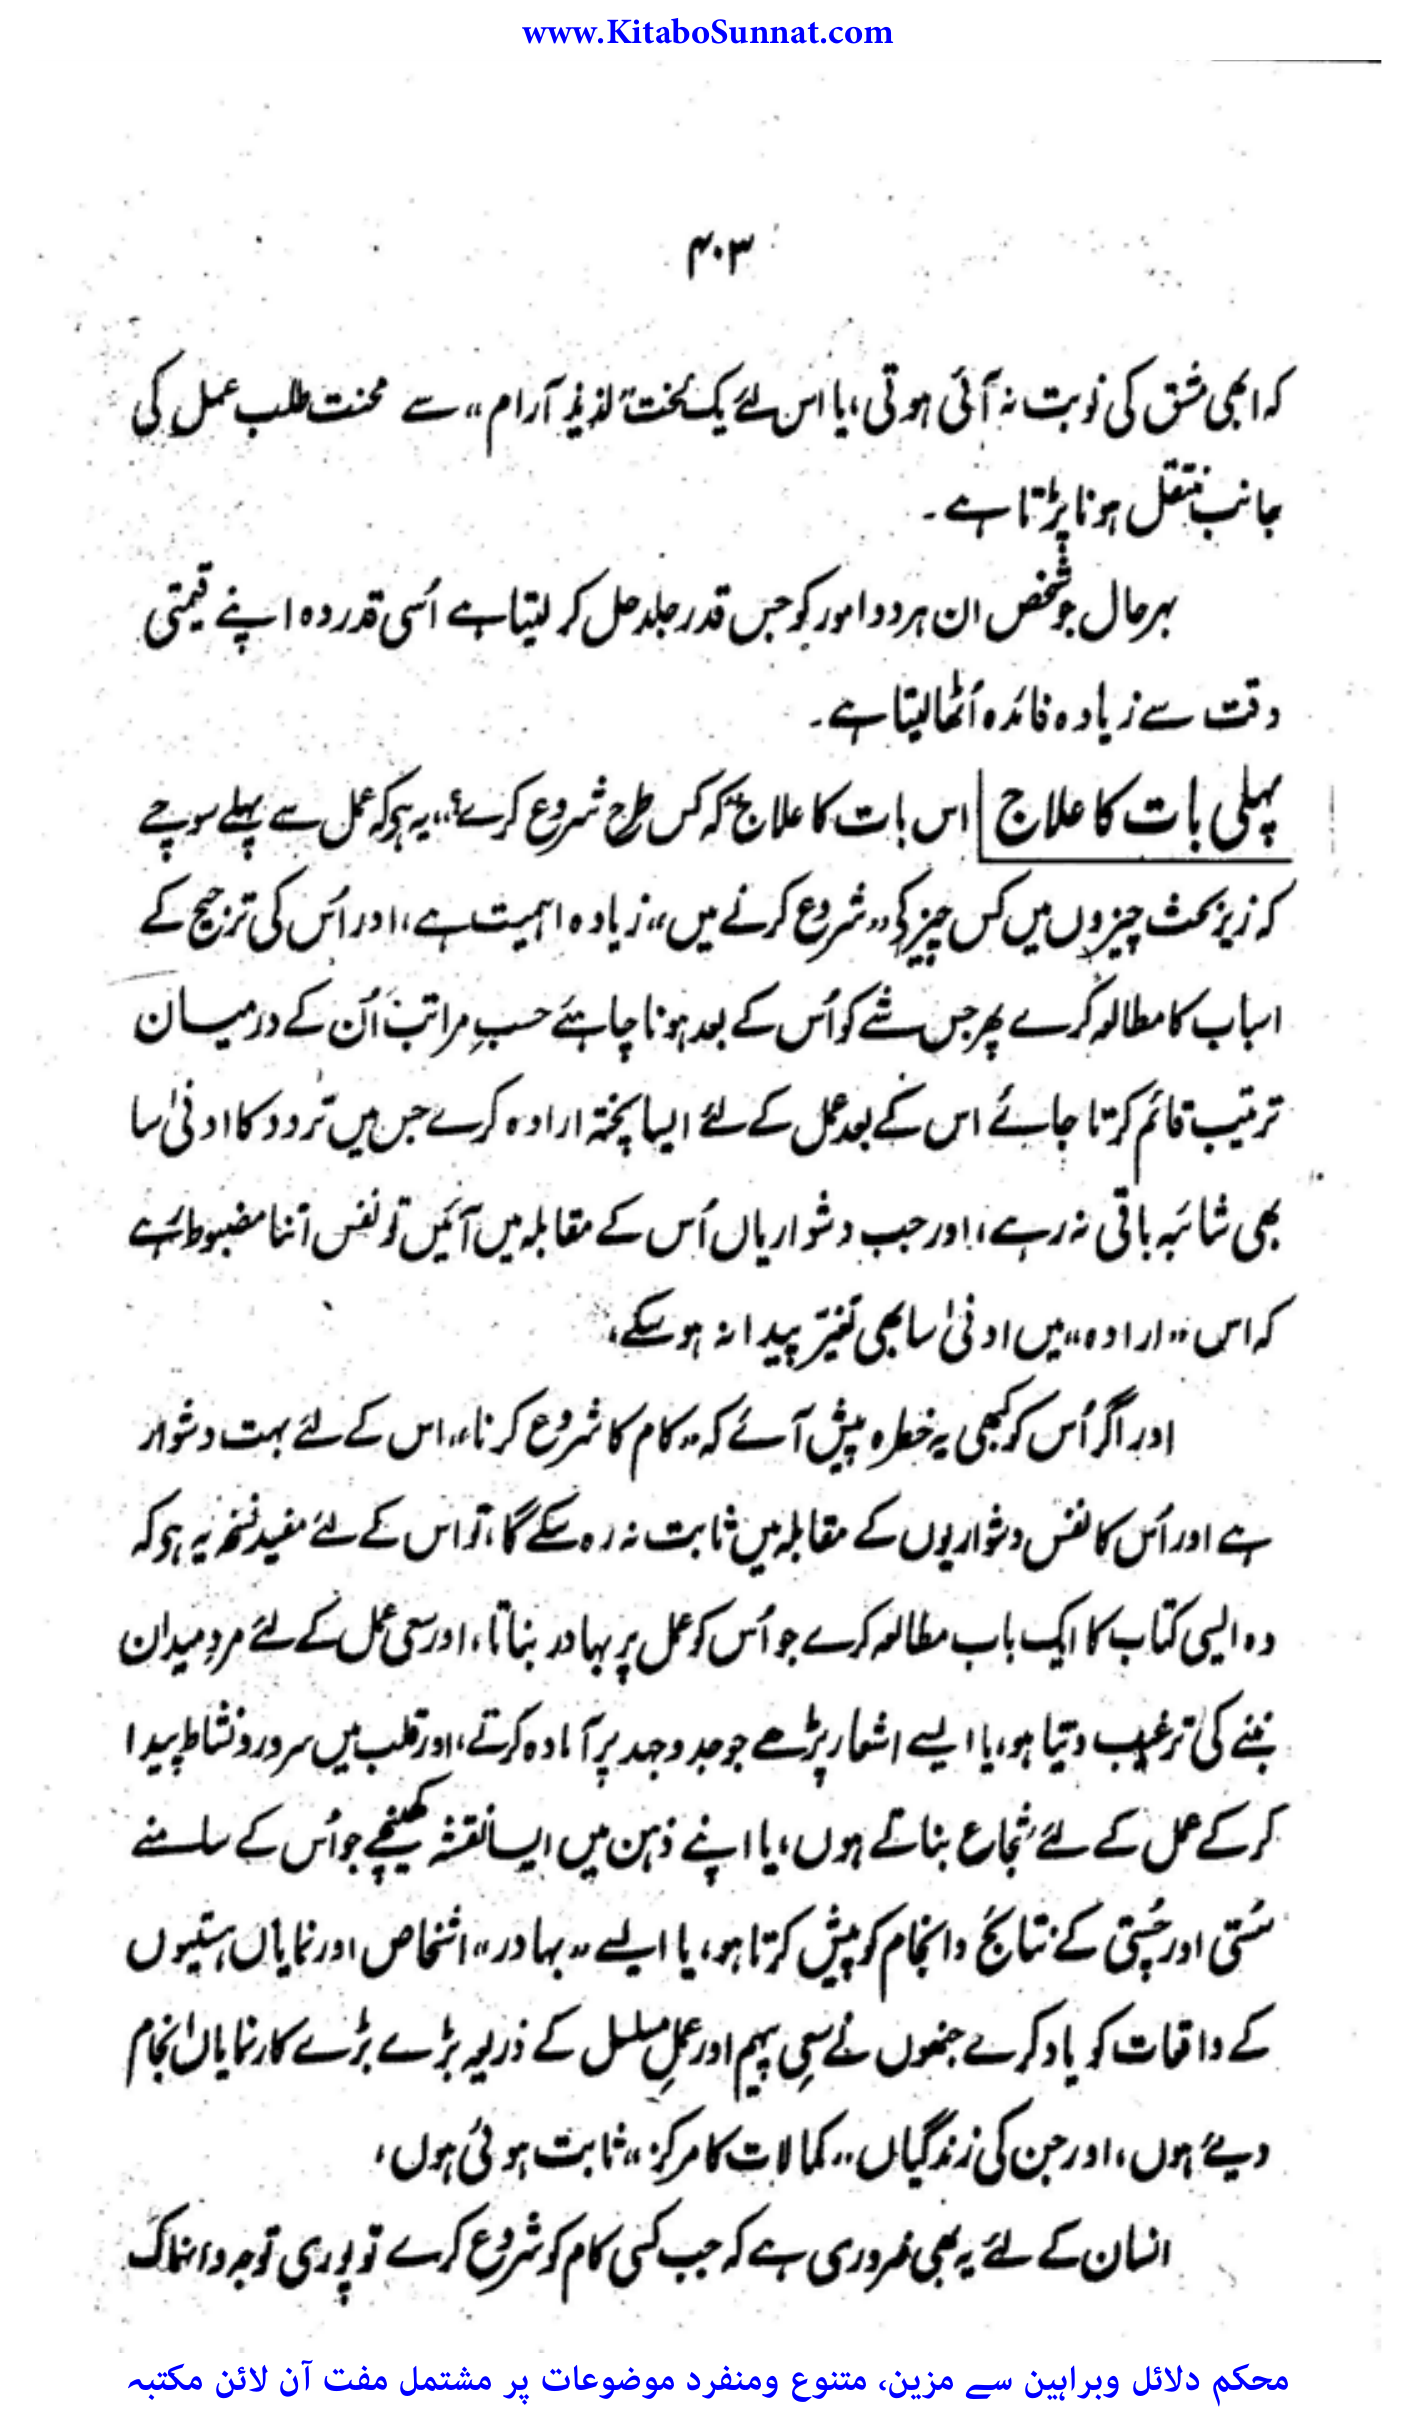 www.KitaboSunnat.com
۴۰۳
کہ ابھی مشق کی نوبت نہ آئی ہوتی، یا اس لئے یک لخت "لذیذ آرام" سے محنت طلب عمل کی
جانب منتقل ہونا پڑتا ہے۔
بہرحال جو شخص ان ہر دو امور کو جس قدر جلد حل کر لیتا ہے اُسی قدر وہ اپنے قیمتی
وقت سے زیادہ فائدہ اُٹھا لیتا ہے۔
پہلی بات کا علاج | اس بات کا علاج "کہ کس طرح شروع کرے؟" یہ ہے کہ عمل سے پہلے سوچے
کہ زیر بحث چیزوں میں کس چیز کی "شروع کرنے میں" زیادہ اہمیت ہے، اور اُس کی ترجیح کے
اسباب کا مطالعہ کرے پھر جس شے کو اُس کے بعد ہونا چاہئے حسبِ مراتب اُن کے درمیان
ترتیب قائم کرتا جائے اس کے بعد عمل کے لئے ایسا پختہ ارادہ کرے جس میں تردد کا ادنیٰ سا
بھی شائبہ باقی نہ رہے، اور جب دشواریاں اُس کے مقابلہ میں آئیں تو نفس اتنا مضبوط رہے
کہ اس "ارادہ" میں ادنیٰ سا بھی تغیّر پیدا نہ ہو سکے،
اور اگر اُس کو کبھی یہ خطرہ پیش آئے کہ "کام کا شروع کرنا" اس کے لئے بہت دشوار
ہے اور اُس کا نفس دشواریوں کے مقابلہ میں ثابت نہ رہ سکے گا، تو اس کے لئے مفید نسخہ یہ ہو کہ
وہ ایسی کتاب کا ایک باب مطالعہ کرے جو اُس کو عمل پر بہادر بناتا، اور سعی عمل کے لئے مردِ میدان
بننے کی ترغیب دیتا ہو، یا ایسے اشعار پڑھے جو جدوجہد پر آمادہ کرتے، اور قلب میں سرور و نشاط پیدا
کر کے عمل کے لئے شجاع بناتے ہوں، یا اپنے ذہن میں ایسا نقشہ کھینچے جو اُس کے سامنے
سُستی اور چُستی کے نتائج و انجام کو پیش کرتا ہو، یا ایسے "بہادر" اشخاص اور نمایاں ہستیوں
کے واقعات کو یاد کرے جنھوں نے سعیِ پیہم اور عملِ مسلسل کے ذریعہ بڑے بڑے کار نمایاں انجام
دیے ہوں، اور جن کی زندگیاں "کمالات کا مرکز" ثابت ہوئی ہوں،
انسان کے لئے یہ بھی ضروری ہے کہ جب کسی کام کو شروع کرے تو پوری توجہ و انہماک
محکم دلائل وبراہین سے مزین، متنوع ومنفرد موضوعات پر مشتمل مفت آن لائن مکتبہ